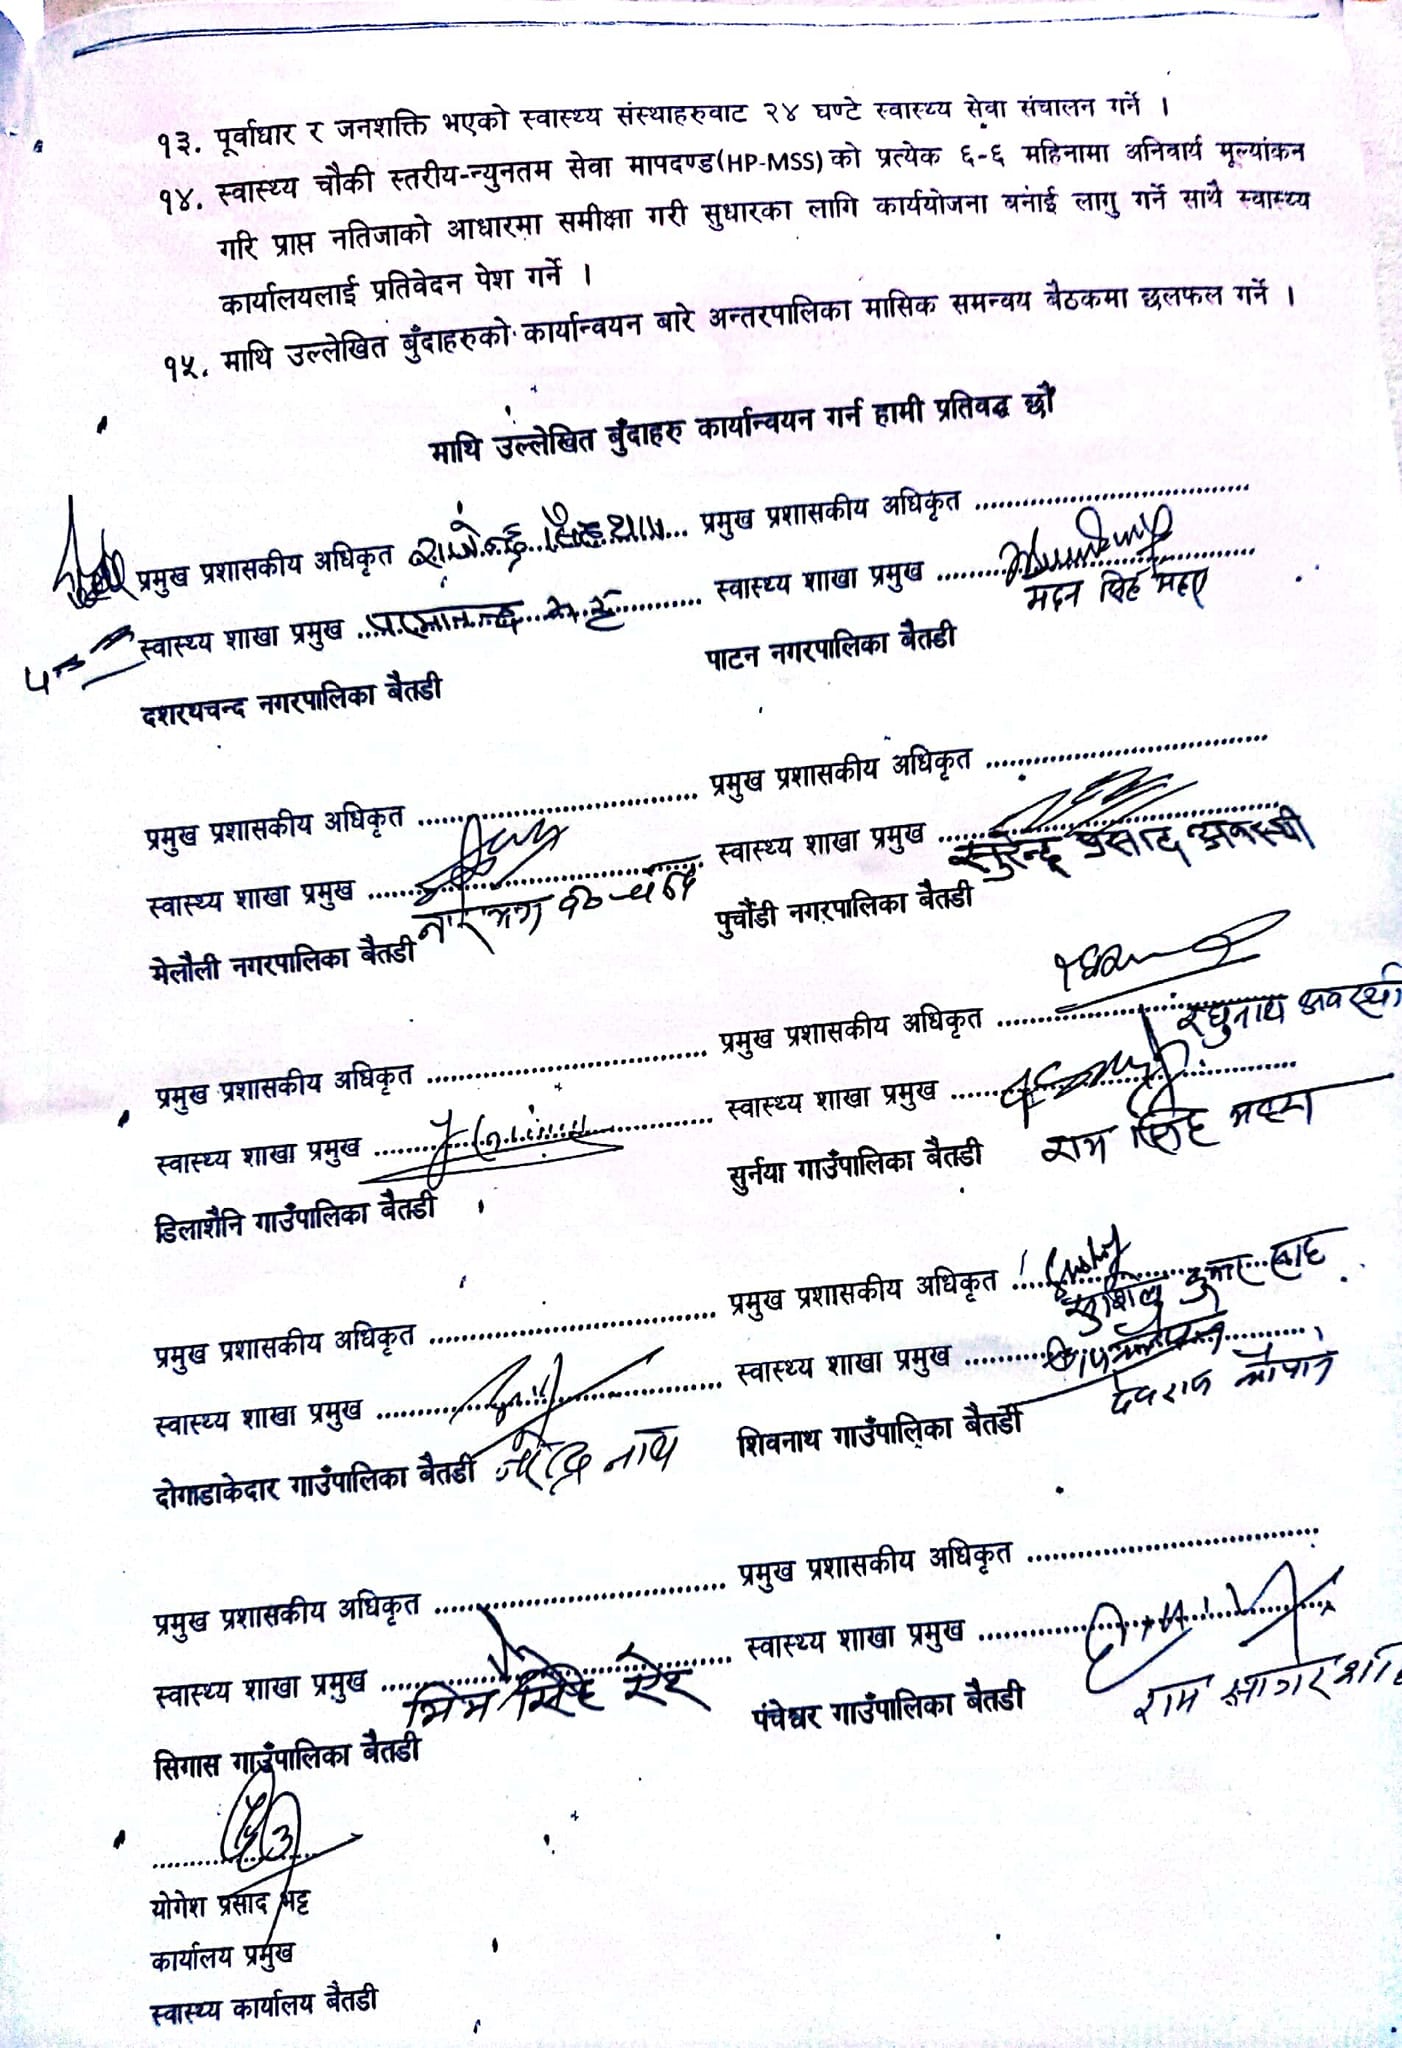 १३. पूर्वाधार र जनशक्ति भएको स्वास्थ्य संस्थाहरुवाट २४ घण्टे स्वास्थ्य सेवा संचालन गर्ने ।
१४. स्वास्थ्य चौकी स्तरीय-न्युनतम सेवा मापदण्ड(HP-MSS) को प्रत्येक ६-६ महिनामा अनिवार्य मूल्यांकन
गरि प्राप्त नतिजाको आधारमा समीक्षा गरी सुधारका लागि कार्ययोजना वनाई लागु गर्ने साथै स्वास्थ्य
कार्यालयलाई प्रतिवेदन पेश गर्ने ।
१५. माथि उल्लेखित बुँदाहरुको कार्यान्वयन बारे अन्तरपालिका मासिक समन्वय बैठकमा छलफल गर्ने ।
माथि उल्लेखित बुँदाहरु कार्यान्वयन गर्न हामी प्रतिवद्ध छौं
प्रमुख प्रशासकीय अधिकृत राजेन्द्र सिंह थापा... प्रमुख प्रशासकीय अधिकृत ..................................
स्वास्थ्य शाखा प्रमुख ....परमानन्द भट्ट........... स्वास्थ्य शाखा प्रमुख ..................................
मदन सिंह महर
दशरथचन्द नगरपालिका बैतडी पाटन नगरपालिका बैतडी
प्रमुख प्रशासकीय अधिकृत .................................. प्रमुख प्रशासकीय अधिकृत ..................................
स्वास्थ्य शाखा प्रमुख .................................. स्वास्थ्य शाखा प्रमुख ..................................
चन्द सुरेन्द्र प्रसाद अवस्थी
मेलौली नगरपालिका बैतडी पुर्चौंडी नगरपालिका बैतडी
प्रमुख प्रशासकीय अधिकृत .................................. प्रमुख प्रशासकीय अधिकृत ..................................
रघुनाथ अवस्थी
स्वास्थ्य शाखा प्रमुख .................................. स्वास्थ्य शाखा प्रमुख ..................................
राम सिंह
डिलाशैनि गाउँपालिका बैतडी सुर्नया गाउँपालिका बैतडी
प्रमुख प्रशासकीय अधिकृत .................................. प्रमुख प्रशासकीय अधिकृत ..................................
सुशिल कुमार
स्वास्थ्य शाखा प्रमुख .................................. स्वास्थ्य शाखा प्रमुख ..................................
देवराज
दोगाडाकेदार गाउँपालिका बैतडी नाथ शिवनाथ गाउँपालिका बैतडी
प्रमुख प्रशासकीय अधिकृत .................................. प्रमुख प्रशासकीय अधिकृत ..................................
स्वास्थ्य शाखा प्रमुख .................................. स्वास्थ्य शाखा प्रमुख ..................................
भिम सिंह ऐर राम सागर
सिगास गाउँपालिका बैतडी पंचेश्वर गाउँपालिका बैतडी
..................
योगेश प्रसाद भट्ट
कार्यालय प्रमुख
स्वास्थ्य कार्यालय बैतडी